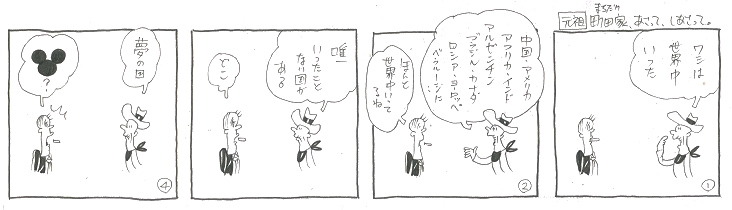 まちだけ
元祖 町田家、あさって、しあさって。
ワシは、
世界中
いった
①
中国・アメリカ
アフリカ・インド
ブラジル・カナダ
アルゼンチン
ロシア・ヨーロッパ
ベラルーシに
ほんと
世界中いって
るね
②
唯一
いったこと
ない国が
ある
どこ
夢の国
？
④